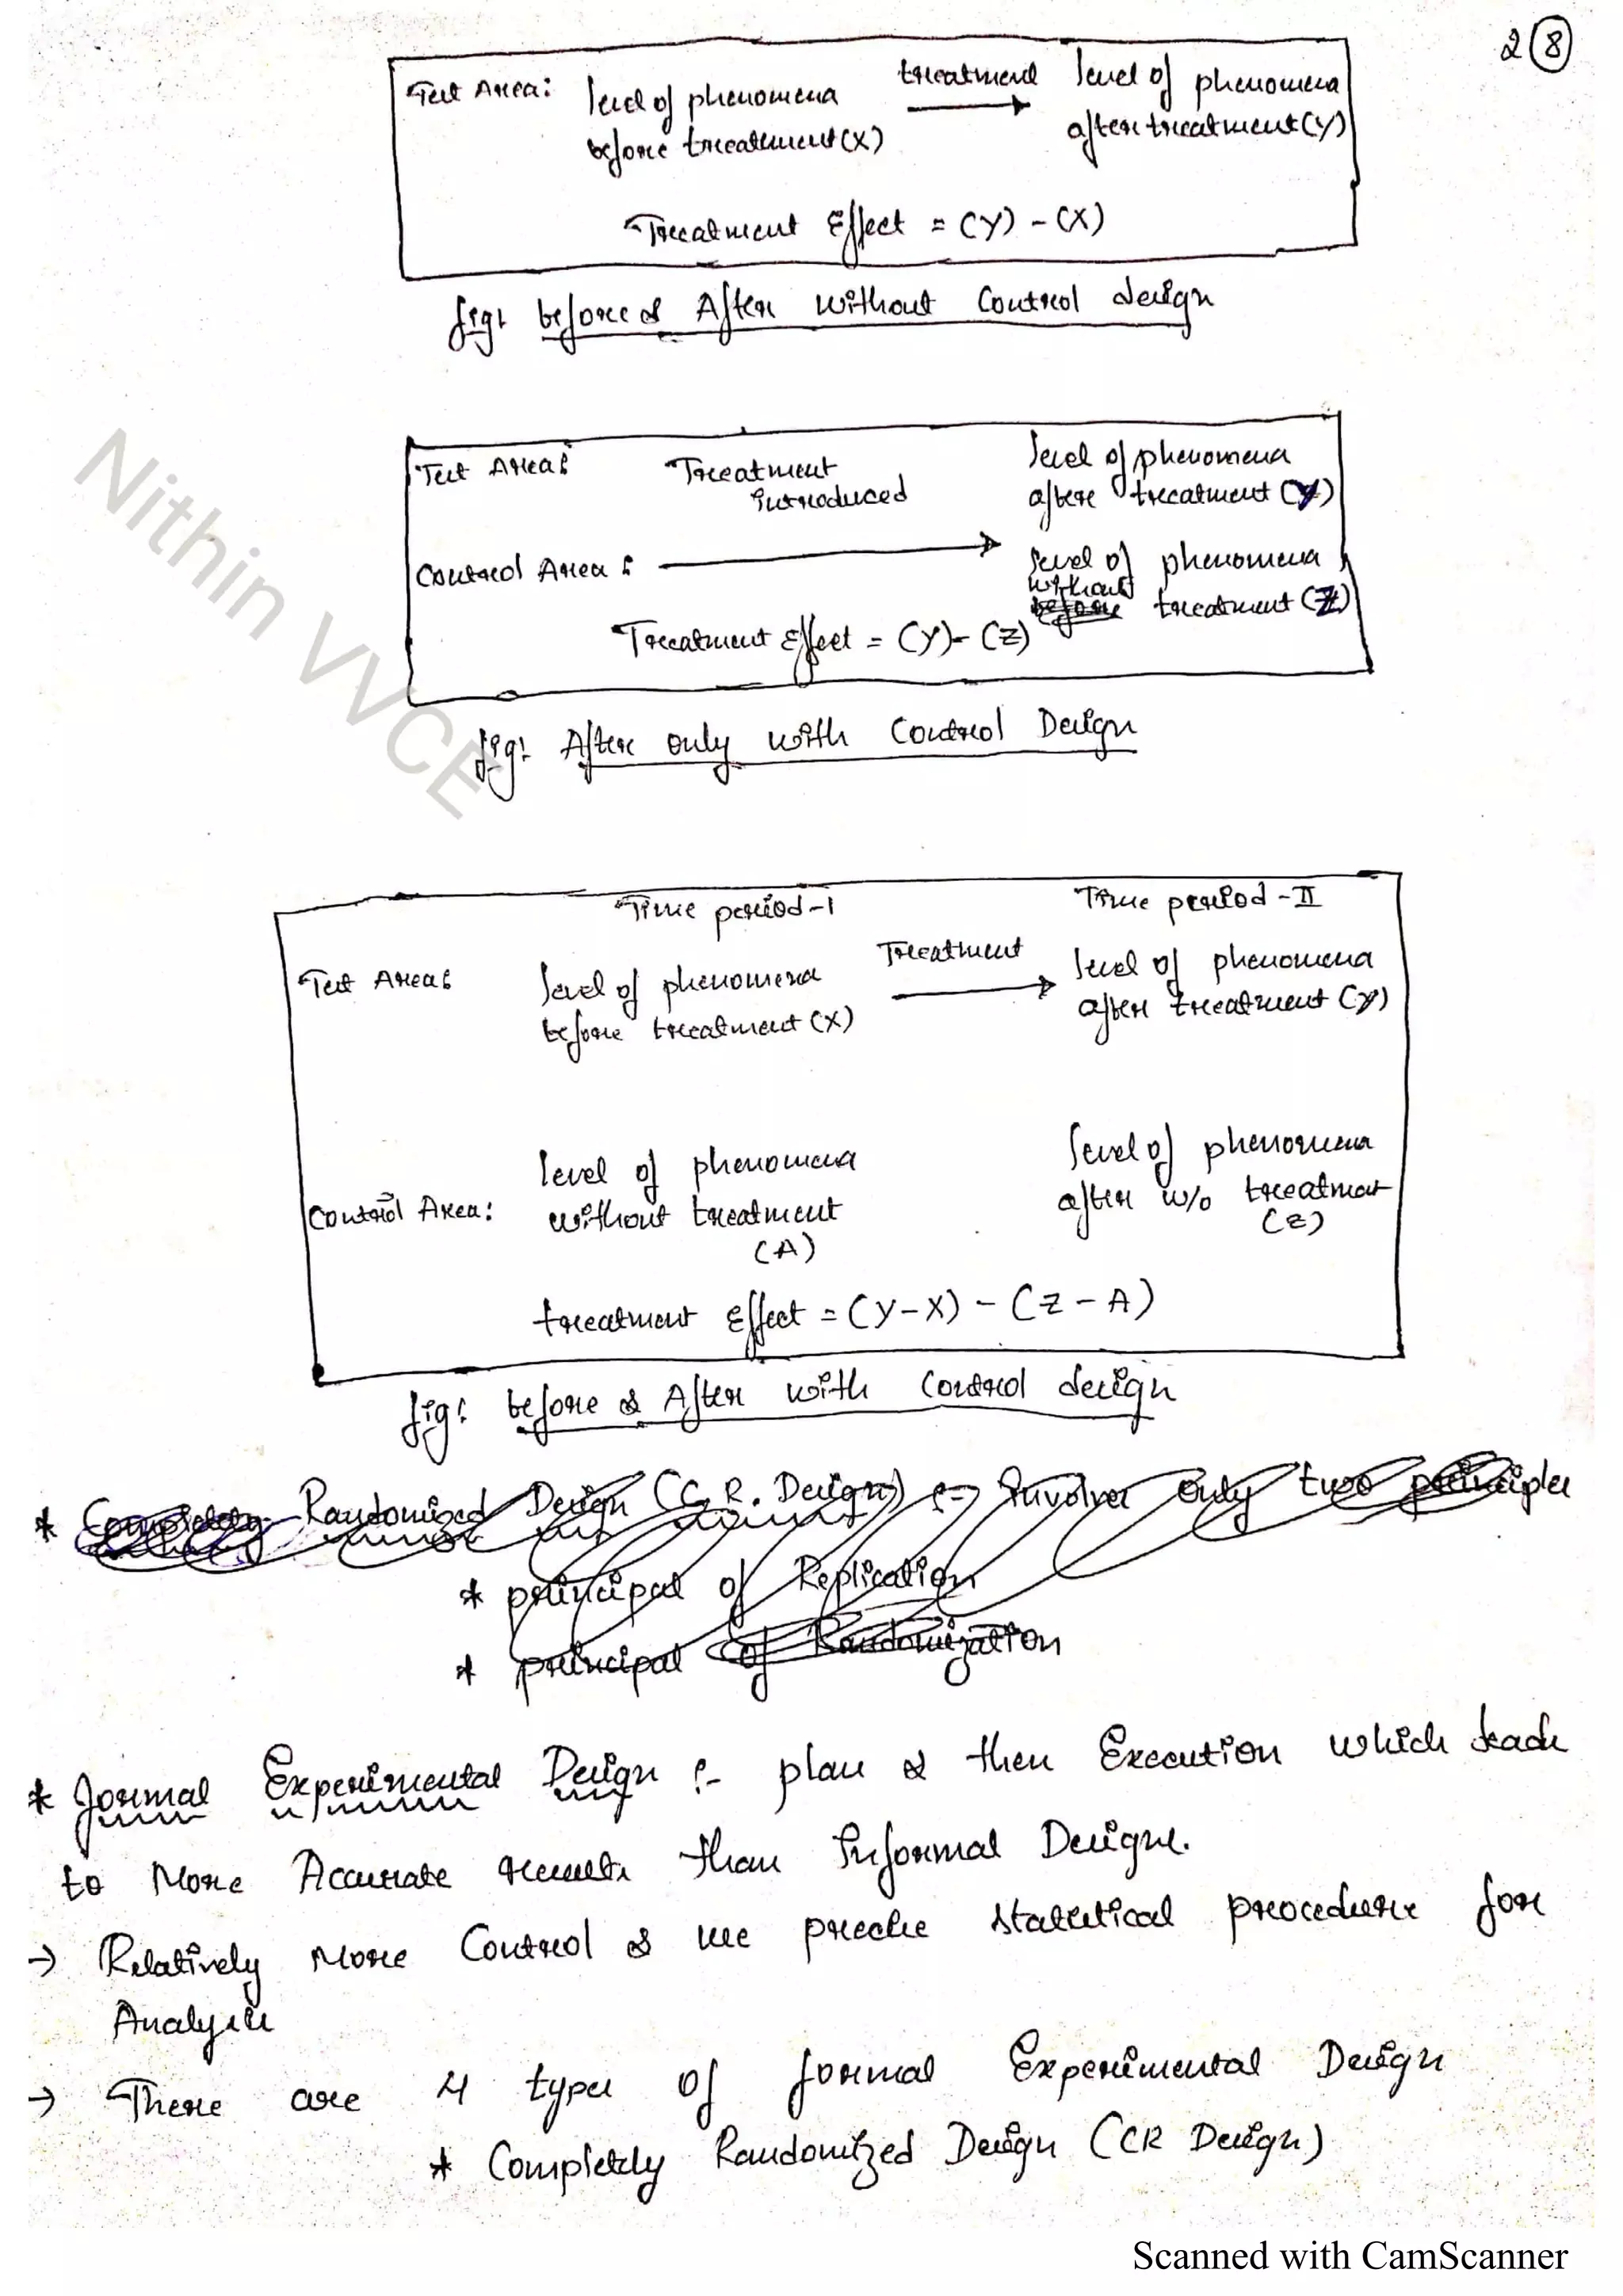 2 (8)
Test Area: level of phenomena before treatment (X) treatment level of phenomena after treatment (Y)
Treatment Effect = (Y) - (X)
fig: before & After without Control design
Test Area: Treatment introduced level of phenomena after treatment (Y)
Control Area: level of phenomena without before treatment (Z)
Treatment Effect = (Y) - (Z)
fig: After only with Control Design
Nithin VVCE
Time period-I Time period-II
Test Area: level of phenomena before treatment (X) Treatment level of phenomena after treatment (Y)
Control Area: level of phenomena without treatment (A) level of phenomena after w/o treatment (Z)
treatment Effect = (Y-X) - (Z-A)
fig: before & After with Control design
* Completely Randomized Design (C.R. Design) :- Involves only two principles
* principal of Replication
* principal of Randomization
* Formal Experimental Design :- plan & then Execution which leads
to More Accurate results than Informal Designs.
→ Relatively More Control & use precise statistical procedures for
Analysis
→ There are 4 types of formal Experimental Design
* Completely Randomized Design (CR Design)
Scanned with CamScanner